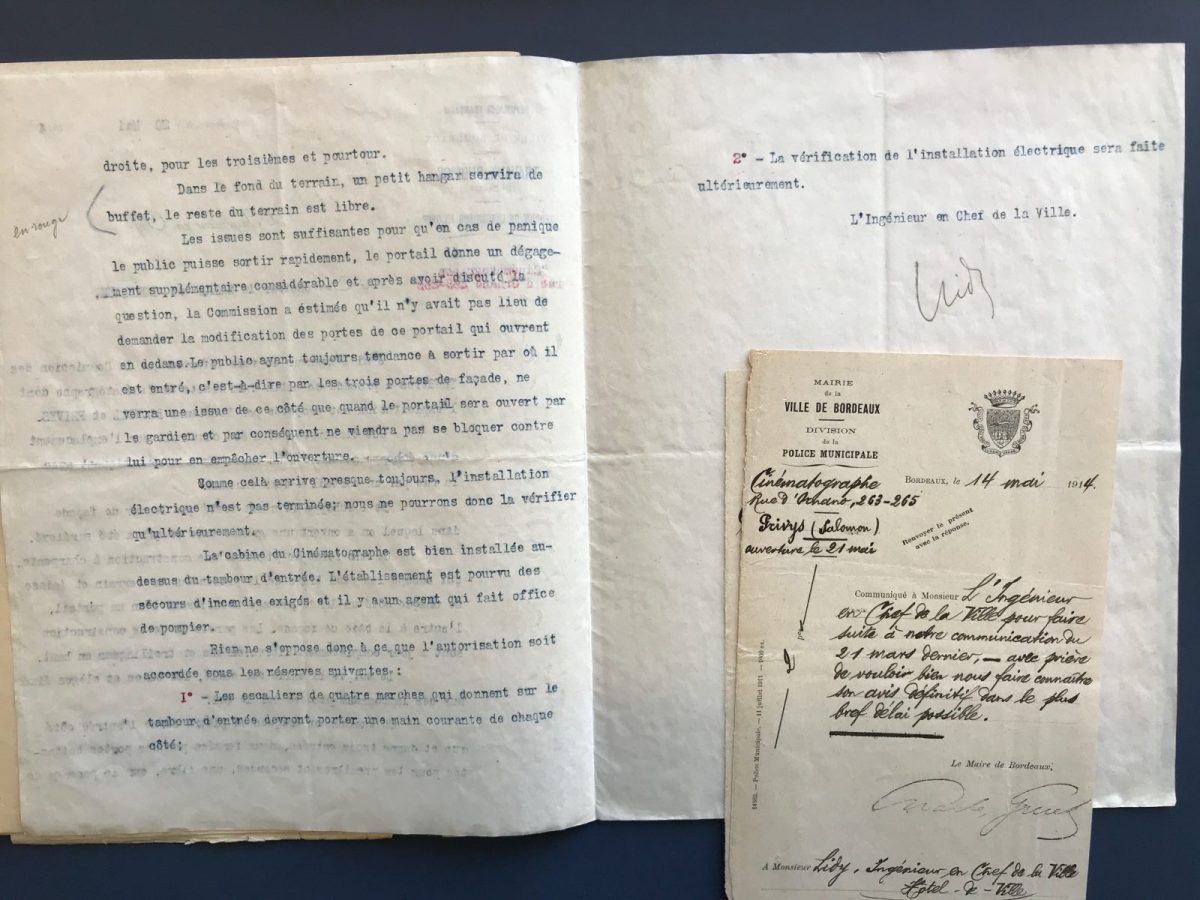 droite, pour les troisièmes et pourtour.
Dans le fond du terrain, un petit hangar servira de
buffet, le reste du terrain est libre.
en rouge
Les issues sont suffisantes pour qu'en cas de panique
le public puisse sortir rapidement, le portail donne un dégage-
ment supplémentaire considérable et après avoir discuté la
question, la Commission a éstimée qu'il n'y avait pas lieu de
demander la modification des portes de ce portail qui ouvrent
en dedans.Le public ayant toujours tendance à sortir par où il
est entré, c'est-à-dire par les trois portes de façade, ne
verra une issue de ce côté que quand le portail sera ouvert par
le gardien et par conséquent ne viendra pas se bloquer contre
lui pour en empêcher l'ouverture.
Comme celà arrive presque toujours, l'installation
électrique n'est pas terminée; nous ne pourrons donc la vérifier
qu'ultérieurement.
La cabine du Cinématographe est bien installée au-
dessus du tambour d'entrée. L'établissement est pourvu des
sécours d'incendie exigés et il y a un agent qui fait office
de pompier.
Rien ne s'oppose donc à ce que l'autorisation soit
accordée sous les réserves suivantes :
I° - Les escaliers de quatre marches qui donnent sur le
tambour d'entrée devront porter une main courante de chaque
côté;
2° - La vérification de l'installation électrique sera faite
ultérieurement.
L'Ingénieur en Chef de la Ville.
Lidy
MAIRIE
de la
VILLE DE BORDEAUX
DIVISION
de la
POLICE MUNICIPALE
Cinématographe
Rue d'Ornano, 263-265
Privys (Salomon)
ouverture le 21 mai
BORDEAUX, le 14 mai 1914.
Renvoyer le présent
avec la réponse.
Communiqué à Monsieur L'Ingénieur
en Chef de la Ville pour faire
suite à notre communication du
21 mars dernier, — avec prière
de vouloir bien nous faire connaître
son avis définitif dans le plus
bref délai possible.
Le Maire de Bordeaux,
A Monsieur Lidy, Ingénieur en Chef de la Ville
Hôtel-de-Ville